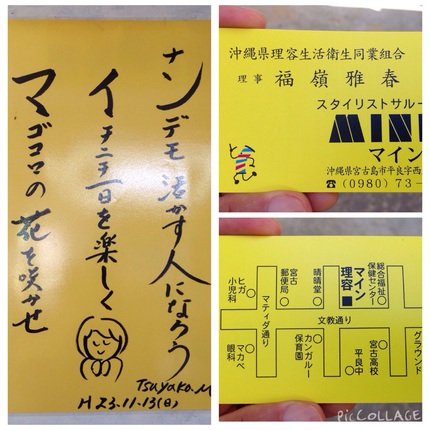 ナンデモ活かす人になろう
イチニチ一日を楽しく
マゴコロの花を咲かせ
Tsuyaka.M
H23.11.13(日)
沖縄県理容生活衛生同業組合
理事 福嶺雅春
スタイリストサルー
MINE
マイン
沖縄県宮古島市平良字西
☎(0980)73-
ヒガ小児科
マティダ通り
宮古郵便局
晴晴堂
マイン理容
総合福祉保健センター
文教通り
マカベ眼科
カンガルー保育園
平良中
宮古高校
グラウンド
PicCOLLAGE